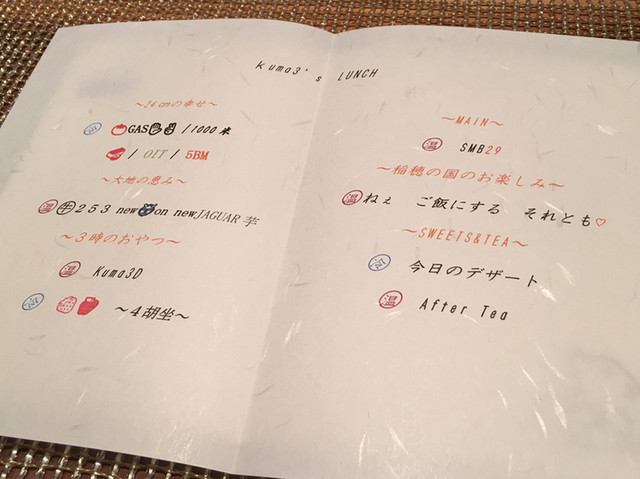 kuma3's LUNCH
～24cmの幸せ～
冷 GAS /1000米
/ OIT / 5BM
～大地の恵み～
温 牛 253 new on newJAGUAR芋
～3時のおやつ～
温 Kuma3D
冷 ～4胡坐～
～MAIN～
温 SMB29
～稲穂の国のお楽しみ～
温 ねぇ ご飯にする それとも♡
～SWEETS&TEA～
冷 今日のデザート
温 After Tea